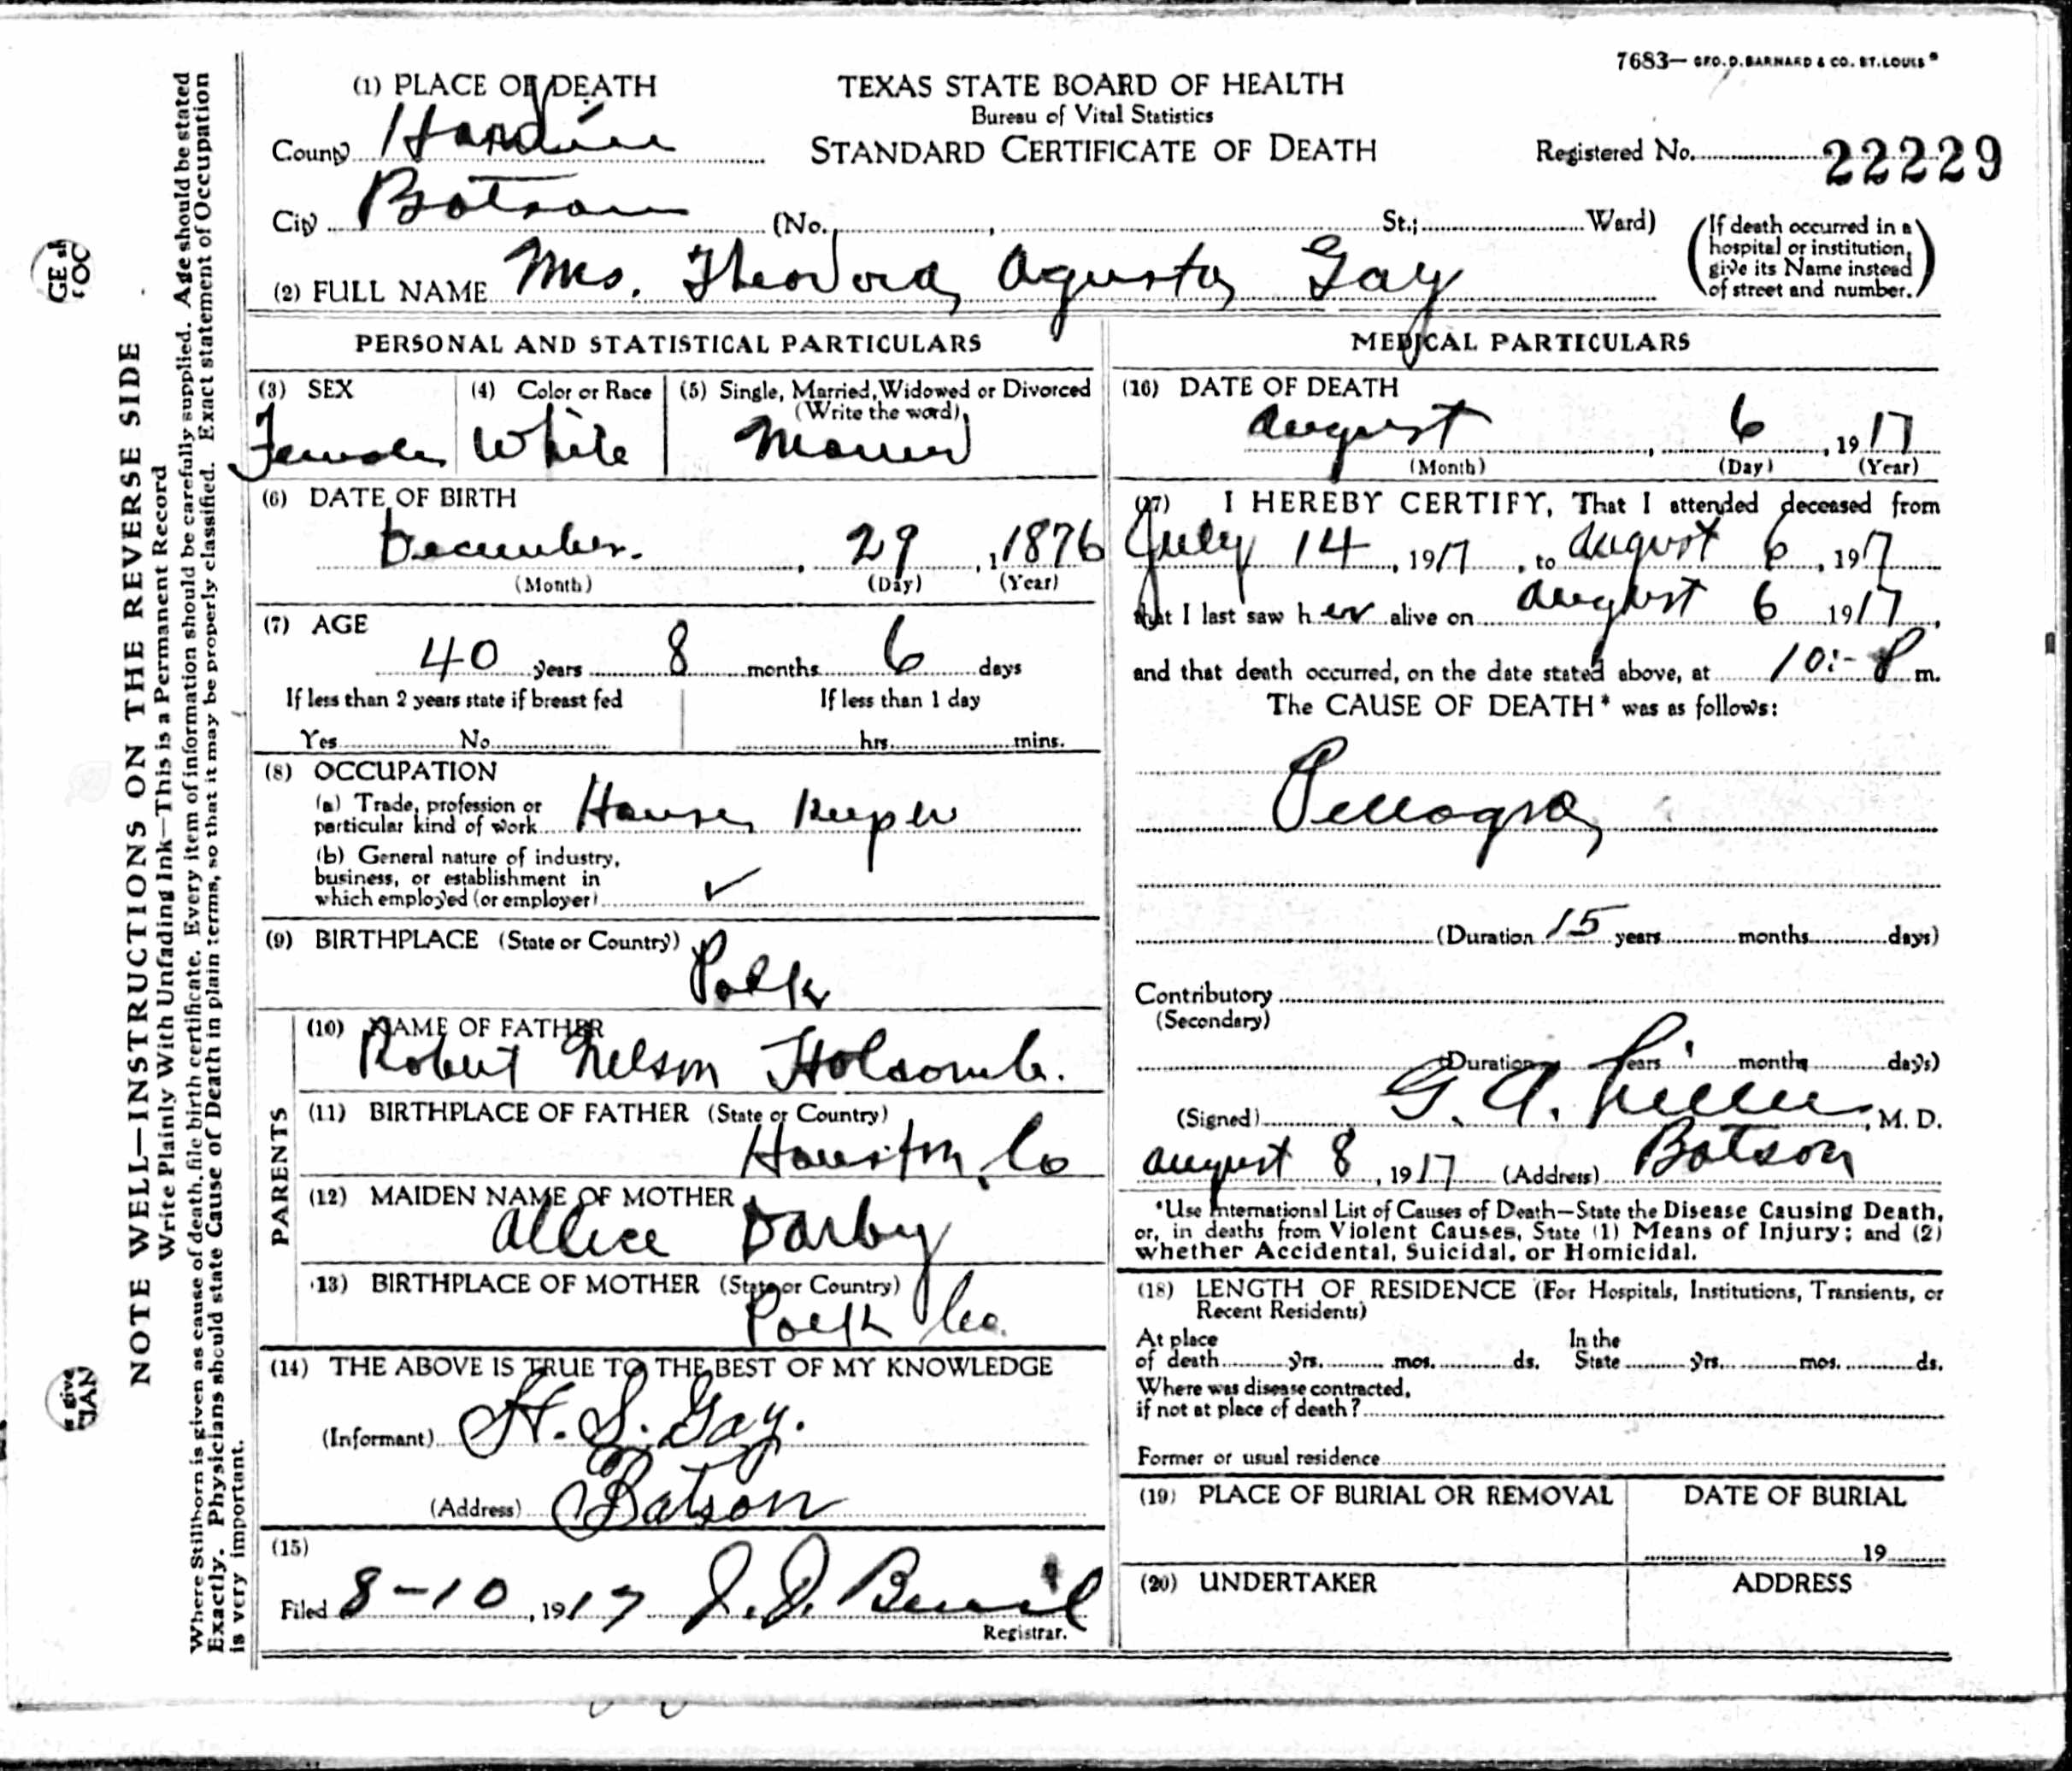 7683— GEO. D. BARNARD & CO. ST. LOUIS
(1) PLACE OF DEATH
TEXAS STATE BOARD OF HEALTH
Bureau of Vital Statistics
STANDARD CERTIFICATE OF DEATH
County Hardin
Registered No. 22229
City Batson (No. , St.; Ward)
(If death occurred in a
hospital or institution,
give its Name instead
of street and number.)
(2) FULL NAME Mrs. Theodora Agusta Gay
PERSONAL AND STATISTICAL PARTICULARS
(3) SEX
Female
(4) Color or Race
White
(5) Single, Married, Widowed or Divorced
(Write the word)
Married
(6) DATE OF BIRTH
December. , 29 , 1876
(Month) (Day) (Year)
(7) AGE
40 years 8 months 6 days
If less than 2 years state if breast fed
Yes No
If less than 1 day
hrs. mins.
(8) OCCUPATION
(a) Trade, profession or
particular kind of work House Keeper
(b) General nature of industry,
business, or establishment in
which employed (or employer) ✓
(9) BIRTHPLACE (State or Country)
Polk
PARENTS
(10) NAME OF FATHER
Robert Nelson Holcomb.
(11) BIRTHPLACE OF FATHER (State or Country)
Houston, Co
(12) MAIDEN NAME OF MOTHER
Allice Darby
(13) BIRTHPLACE OF MOTHER (State or Country)
Polk Co.
(14) THE ABOVE IS TRUE TO THE BEST OF MY KNOWLEDGE
(Informant) H. S. Gay.
(Address) Batson
(15)
Filed 8-10, 1917 J. D.
Registrar.
MEDICAL PARTICULARS
(16) DATE OF DEATH
August , 6 , 1917
(Month) (Day) (Year)
(17) I HEREBY CERTIFY, That I attended deceased from
July 14, 1917, to August 6, 1917
that I last saw her alive on August 6 1917,
and that death occurred, on the date stated above, at 10:- P m.
The CAUSE OF DEATH* was as follows:
Pellagra
(Duration 15 years months days)
Contributory
(Secondary)
(Duration years months days)
(Signed) G. A. , M. D.
August 8, 1917 (Address) Batson
*Use International List of Causes of Death—State the Disease Causing Death,
or, in deaths from Violent Causes, State (1) Means of Injury; and (2)
whether Accidental, Suicidal, or Homicidal.
(18) LENGTH OF RESIDENCE (For Hospitals, Institutions, Transients, or
Recent Residents)
At place
of death yrs. mos. ds.
In the
State yrs. mos. ds.
Where was disease contracted,
if not at place of death?
Former or usual residence
(19) PLACE OF BURIAL OR REMOVAL
DATE OF BURIAL
19
(20) UNDERTAKER
ADDRESS
NOTE WELL—INSTRUCTIONS ON THE REVERSE SIDE
Write Plainly With Unfading Ink—This is a Permanent Record
Where Stillborn is given as cause of death, file birth certificate. Every item of information should be carefully supplied. Age should be stated
Exactly. Physicians should state Cause of Death in plain terms, so that it may be properly classified. Exact statement of Occupation
is very important.